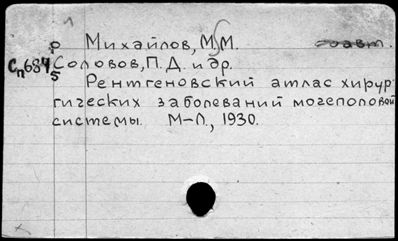 р Михайлов, М.М. соавт.
Сп684 Соловов, П.Д. и др.
5 Рентгеновский атлас хирур-
гических заболеваний мочеполовой
системы. М-Л., 1930.